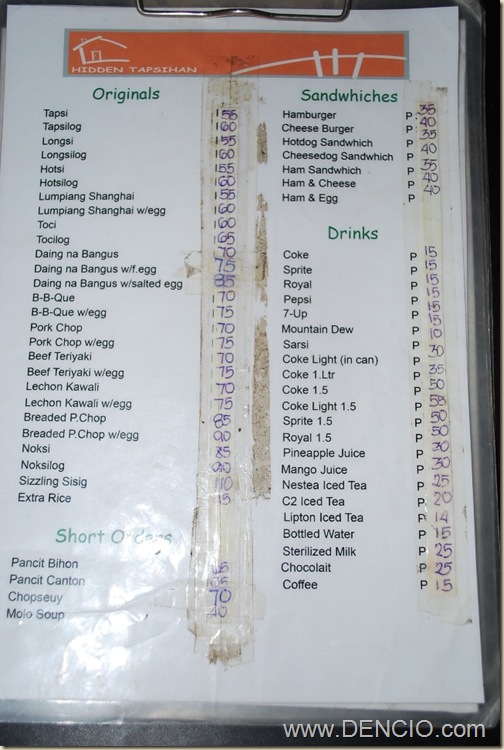 HIDDEN TAPSIHAN
Originals
Tapsi 55
Tapsilog 60
Longsi 55
Longsilog 60
Hotsi 55
Hotsilog 60
Lumpiang Shanghai 55
Lumpiang Shanghai w/egg 60
Toci 60
Tocilog 65
Daing na Bangus 70
Daing na Bangus w/f.egg 75
Daing na Bangus w/salted egg 85
B-B-Que 70
B-B-Que w/egg 75
Pork Chop 70
Pork Chop w/egg 75
Beef Teriyaki 70
Beef Teriyaki w/egg 75
Lechon Kawali 70
Lechon Kawali w/egg 75
Breaded P.Chop 85
Breaded P.Chop w/egg 90
Noksi 85
Noksilog 90
Sizzling Sisig 110
Extra Rice 15
Short Orders
Pancit Bihon
Pancit Canton
Chopseuy 70
Molo Soup 40
Sandwhiches
Hamburger P 35
Cheese Burger P 40
Hotdog Sandwhich P 35
Cheesedog Sandwhich P 40
Ham Sandwhich P 35
Ham & Cheese P 40
Ham & Egg P 40
Drinks
Coke P 15
Sprite P 15
Royal P 15
Pepsi P 15
7-Up P 15
Mountain Dew P 15
Sarsi P 10
Coke Light (in can) P 30
Coke 1.Ltr P 35
Coke 1.5 P 50
Coke Light 1.5 P 55
Sprite 1.5 P 50
Royal 1.5 P 50
Pineapple Juice P 30
Mango Juice P 30
Nestea Iced Tea P 25
C2 Iced Tea P 20
Lipton Iced Tea P 14
Bottled Water P 15
Sterilized Milk P 25
Chocolait P 25
Coffee P 15
www.DENCIO.com